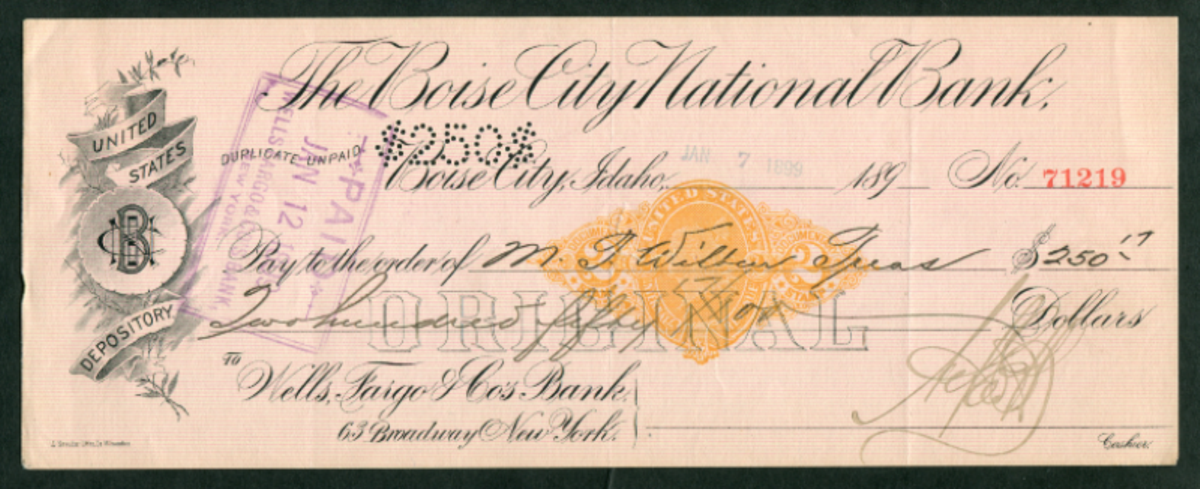 The Boise City National Bank,
UNITED STATES
DEPOSITORY
DUPLICATE UNPAID
$250$
Boise City, Idaho, JAN 7 1899 189 No. 71219
PAID
JAN 12
WELLS FARGO & CO'S BANK
NEW YORK
UNITED STATES
Pay to the order of M. F. Treas $250 17
Two hundred fifty 17/100 Dollars
ORIGINAL
To Wells, Fargo & Co's Bank,
63 Broadway New York.
Cashier.